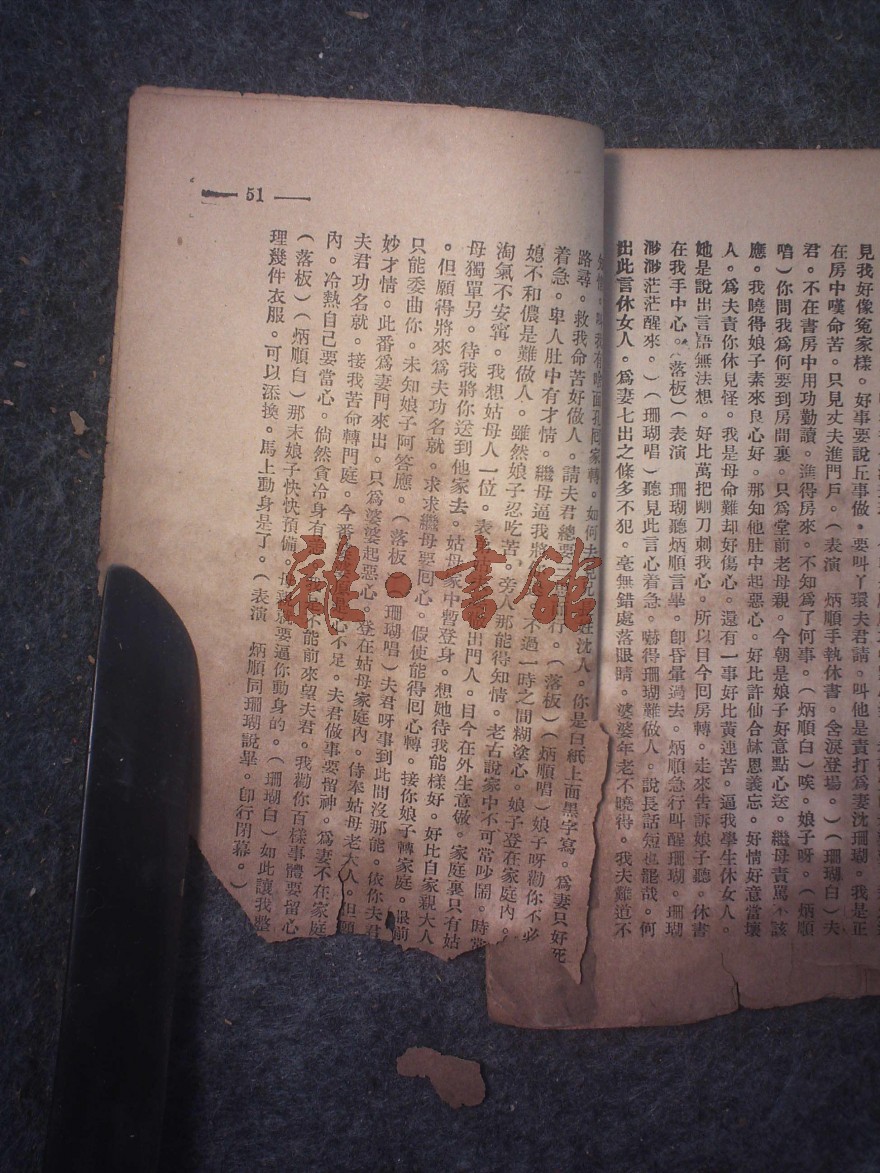 見我好像冤家樣。好事要說丘事做。要叫丫環夫君請。叫他是責打爲妻沈珊瑚。我是正
在房中嘆命苦。只見丈夫進門戶。（表演　炳順手執休書。含淚登場。）（珊瑚白）夫
君。不在書房中用功勤讀。進得房來。不知爲了何事。（炳順白）唉。娘子呀。（炳順
唱）你問我爲何要到房間裏。只爲堂前老母親。今朝是娘子好意點心送。繼母責罵不該
應。我曉得娘子素來良心好。那知他肚中起惡心。好比許仙合缽恩義忘。好情好意當壞
人。爲夫責你休見怪。我是母命難却好傷心。還有一事好比黃連苦。逼我學生休女人。
她是說出言語無法想。好比萬把剛刀刺我心。所以目今囘房轉。走來告訴娘子聽。休書
在我手中心。（落板）（表演　珊瑚聽炳順言畢。卽昏暈過去。炳順急行叫醒珊瑚。珊瑚
渺渺茫茫醒來。）（珊瑚唱）聽見此言心着急。嚇得珊瑚難做人。說長話短也能哉。何
出此言休女人。爲妻七出之條多不犯。毫無錯處落眼睛。婆婆年老不曉得。我夫難道不
面孔囘家轉。如何去見沈人。你是白紙上面黑字寫。爲妻只好死
路尋。救我命苦好做人。請夫君總要（落板）（炳順唱）娘子呀勸你不必
着急。卑人肚中有才情。繼母逼我將不過一時之間糊塗心。娘子登在家庭內。
媳不和儂是難做人。雖然娘子忍吃苦。旁人那能得知情。老古說家中不可常吵鬧。時常
淘氣不安寗。我想姑母人一位。表出門人。目今在外生意做。家庭裏只有姑
母獨單另。待我將你送到他家去。姑母家中暫登身。想她待我能樣好。好比自家親大人
。但願得將來爲夫功名就。求求繼母要囘心。假使能得囘心轉。接你娘子轉家庭。眼前
只能委曲你。未知娘子阿答應。（落板）（珊瑚唱）夫君呀事到此間沒那能。依你夫君
妙才情。此番爲妻門來出。只爲婆婆起惡心。登在姑母家庭內。侍奉姑母老大人。但願
夫君功名就。接我苦命轉門庭。今番心不足。夫君做事要留神。爲妻不在家庭
內。冷熱自己要當心。倘然貪冷身有不能前來望夫君。我勸你百樣事體要留心
（落板）（炳順白）那末娘子快快預備。母親就要逼你動身的。（珊瑚白）如此讓我整
理幾件衣服。可以添換。馬上動身是了。（表演　炳順同珊瑚說畢。卽行閉幕。）
— 51 —
雜·書館